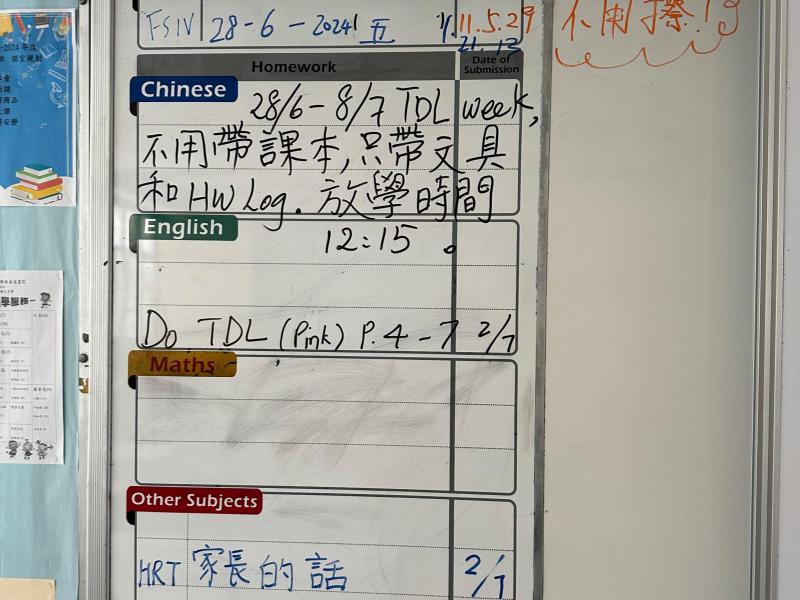 FSIV 28-6-2024 五
11.5.29
21.13
不用擦!
Homework
Date of Submission
Chinese
28/6-8/7 TDL week,
不用帶課本,只帶文具
和HW Log. 放學時間
12:15。
English
Do TDL (Pink) P.4-7 2/7
Maths
Other Subjects
HRT 家長的話 2/7